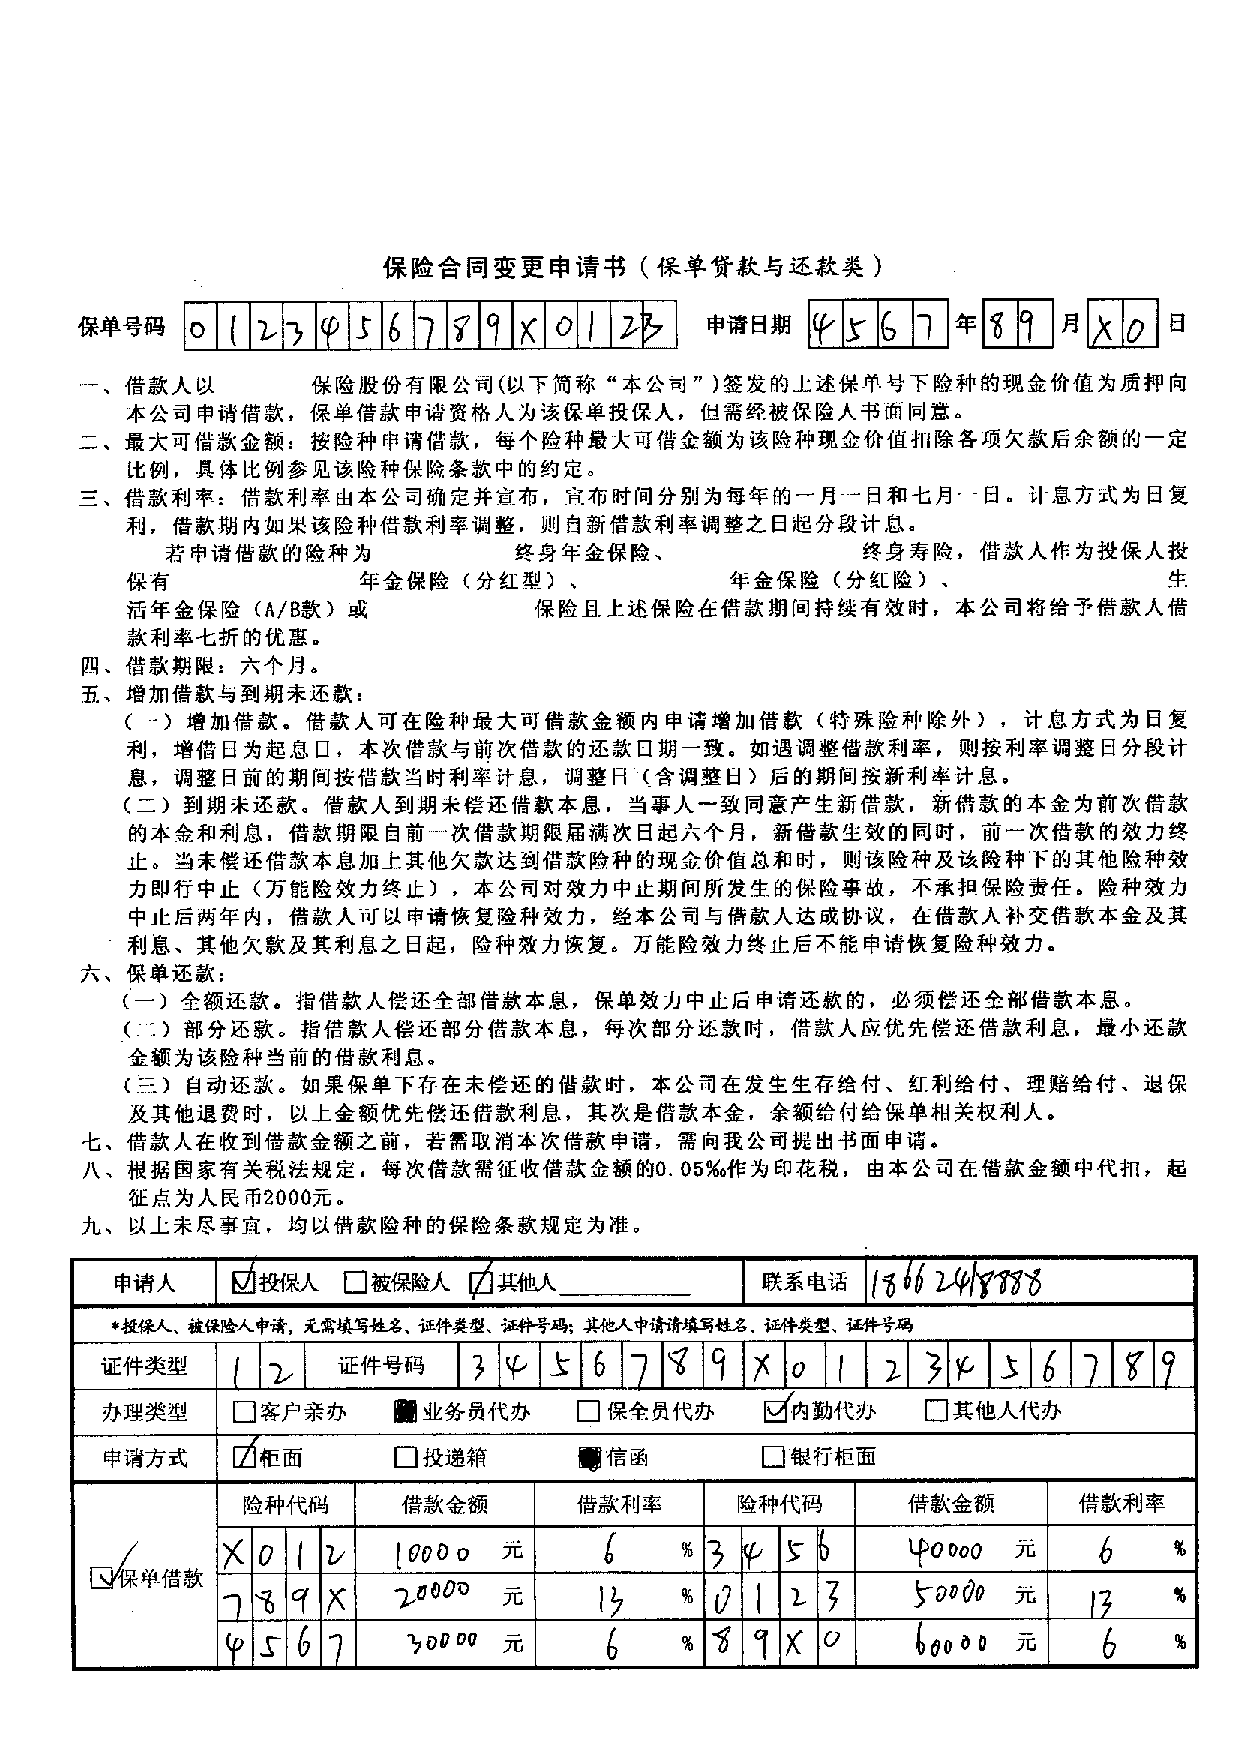 保险合同变更申请书（保单贷款与还款类）
保单号码 0123456789X0123 申请日期 4567年89月X0日
一、借款人以 保险股份有限公司(以下简称“本公司”)签发的上述保单号下险种的现金价值为质押向
本公司申请借款，保单借款申请资格人为该保单投保人，但需经被保险人书面同意。
二、最大可借款金额：按险种申请借款，每个险种最大可借金额为该险种现金价值扣除各项欠款后余额的一定
比例，具体比例参见该险种保险条款中的约定。
三、借款利率：借款利率由本公司确定并宣布，宣布时间分别为每年的一月一日和七月一日。计息方式为日复
利，借款期内如果该险种借款利率调整，则自新借款利率调整之日起分段计息。
若申请借款的险种为 终身年金保险、 终身寿险，借款人作为投保人投
保有 年金保险（分红型）、 年金保险（分红险）、 生
活年金保险（A/B款）或 保险且上述保险在借款期间持续有效时，本公司将给予借款人借
款利率七折的优惠。
四、借款期限：六个月。
五、增加借款与到期未还款：
（一）增加借款。借款人可在险种最大可借款金额内申请增加借款（特殊险种除外），计息方式为日复
利，增借日为起息日，本次借款与前次借款的还款日期一致。如遇调整借款利率，则按利率调整日分段计
息，调整日前的期间按借款当时利率计息，调整日（含调整日）后的期间按新利率计息。
（二）到期未还款。借款人到期未偿还借款本息，当事人一致同意产生新借款，新借款的本金为前次借款
的本金和利息，借款期限自前一次借款期限届满次日起六个月，新借款生效的同时，前一次借款的效力终
止。当未偿还借款本息加上其他欠款达到借款险种的现金价值总和时，则该险种及该险种下的其他险种效
力即行中止（万能险效力终止），本公司对效力中止期间所发生的保险事故，不承担保险责任。险种效力
中止后两年内，借款人可以申请恢复险种效力，经本公司与借款人达成协议，在借款人补交借款本金及其
利息、其他欠款及其利息之日起，险种效力恢复。万能险效力终止后不能申请恢复险种效力。
六、保单还款：
（一）全额还款。指借款人偿还全部借款本息，保单效力中止后申请还款的，必须偿还全部借款本息。
（二）部分还款。指借款人偿还部分借款本息，每次部分还款时，借款人应优先偿还借款利息，最小还款
金额为该险种当前的借款利息。
（三）自动还款。如果保单下存在未偿还的借款时，本公司在发生生存给付、红利给付、理赔给付、退保
及其他退费时，以上金额优先偿还借款利息，其次是借款本金，余额给付给保单相关权利人。
七、借款人在收到借款金额之前，若需取消本次借款申请，需向我公司提出书面申请。
八、根据国家有关税法规定，每次借款需征收借款金额的0.05‰作为印花税，由本公司在借款金额中代扣，起
征点为人民币2000元。
九、以上未尽事宜，均以借款险种的保险条款规定为准。
申请人 ☑投保人 □被保险人 ☑其他人 联系电话 18662418888
*投保人、被保险人申请，无需填写姓名、证件类型、证件号码；其他人申请请填写姓名、证件类型、证件号码
证件类型 12 证件号码 3456789X0123456789
办理类型 □客户亲办 ■业务员代办 □保全员代办 ☑内勤代办 □其他人代办
申请方式 ☑柜面 □投递箱 ■信函 □银行柜面
险种代码 借款金额 借款利率 险种代码 借款金额 借款利率
X012 10000元 6% 3456 40000元 6%
☑保单借款
789X 20000元 13% 0123 50000元 13%
4567 30000元 6% 89X0 60000元 6%